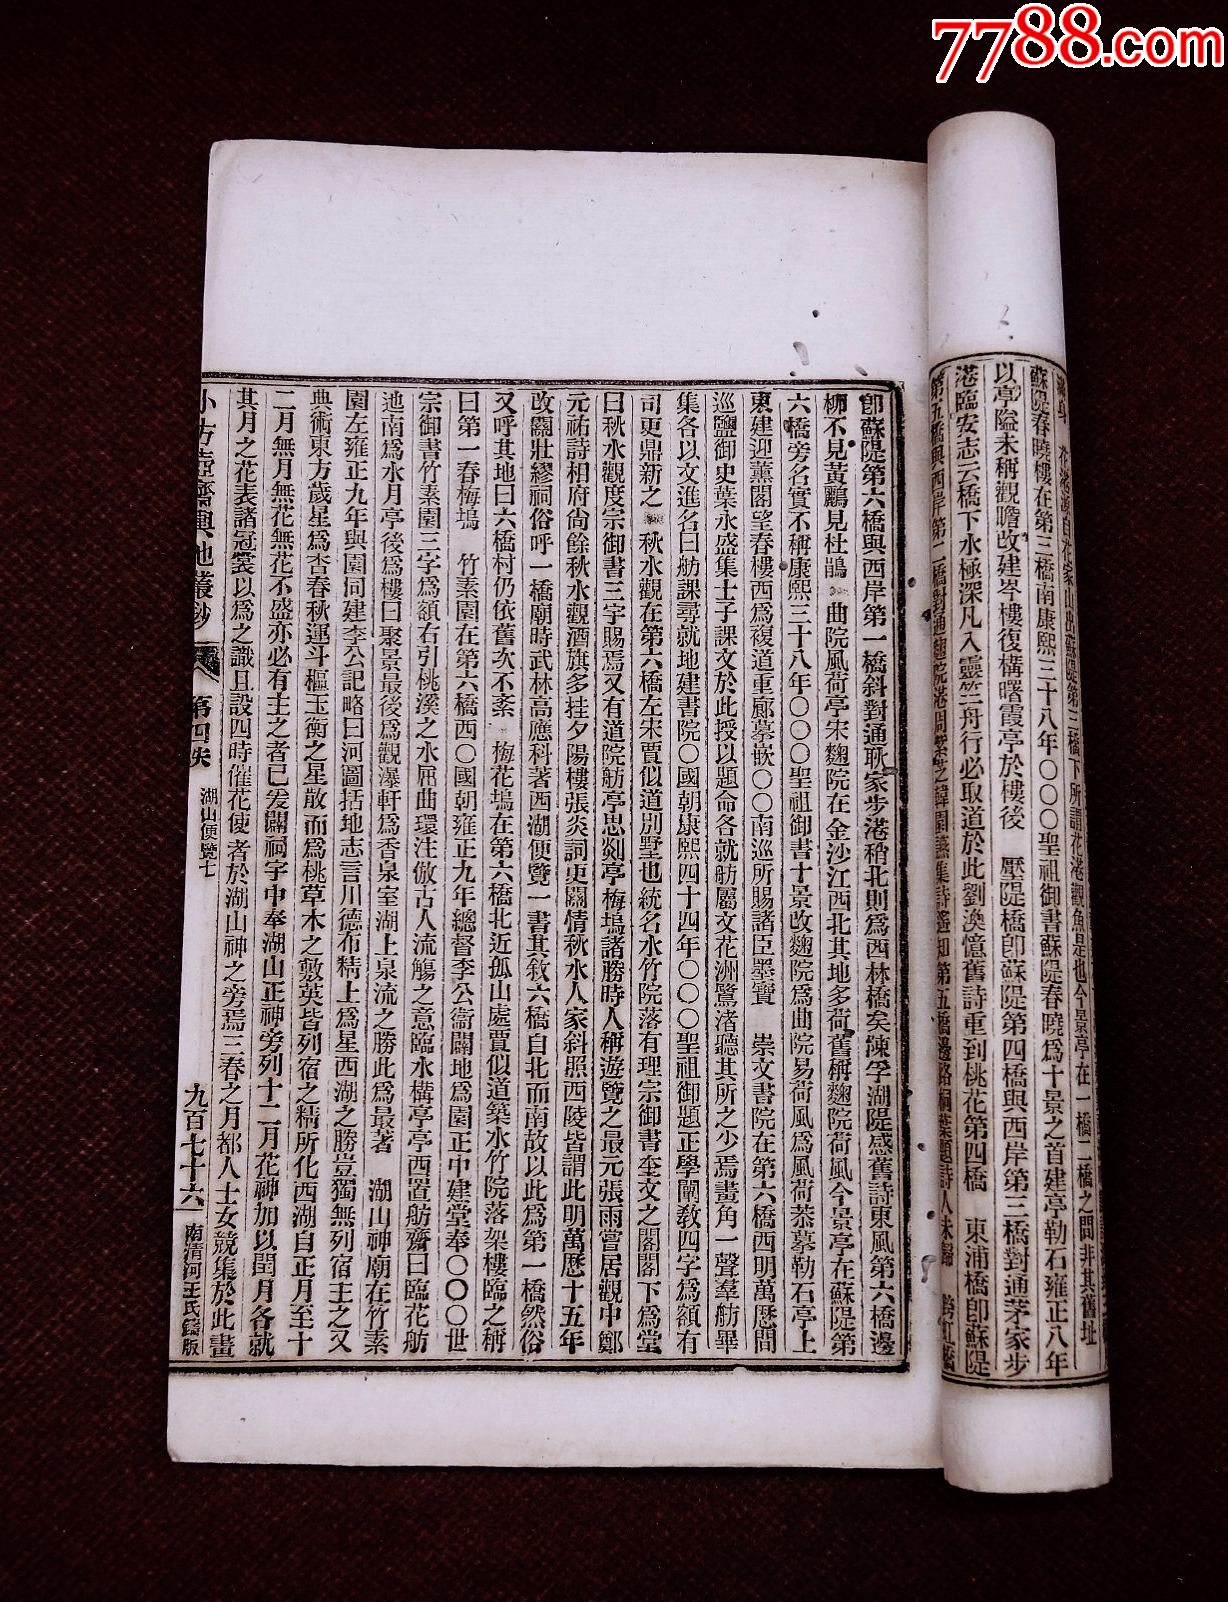 7788.com
蘇隄春曉樓在第三橋南康熙三十八年〇〇〇聖祖御書蘇隄春曉爲十景之首建亭勒石雍正八年
以亭隘未稱觀瞻改建岑樓復構曙霞亭於樓後 壓隄橋卽蘇隄第四橋與西岸第三橋對通茅家步
港臨安志云橋下水極深凡入靈竺舟行必取道於此劉渙憶舊詩重到桃花第四橋 東浦橋卽蘇隄
卽蘇隄第六橋與西岸第一橋斜對通耿家步港稍北則爲西林橋矣陳孚湖隄感舊詩東風第六橋邊
柳不見黃鸝見杜鵑 曲院風荷亭宋麴院在金沙江西北其地多荷舊稱麴院荷風今景亭在蘇隄第
六橋旁名實不稱康熙三十八年〇〇〇聖祖御書十景改麴院爲曲院易荷風爲風荷恭摹勒石亭上
東建迎薰閣望春樓西爲複道重廊摹嵌〇〇〇南巡所賜諸臣墨寶 崇文書院在第六橋西明萬歷間
巡鹽御史葉永盛集士子課文於此授以題命各就舫屬文花洲鷺渚聽其所之少焉畫角一聲羣舫畢
集各以文進名曰舫課尋就地建書院〇國朝康熙四十四年〇〇〇聖祖御題正學闡敎四字爲額有
司更鼎新之 秋水觀在第六橋左宋賈似道別墅也統名水竹院落有理宗御書奎文之閣閣下爲堂
曰秋水觀度宗御書三字賜焉又有道院舫亭思剡亭梅塢諸勝時人稱遊覽之最元張雨嘗居觀中鄭
元祐詩相府尙餘秋水觀酒旗多桂夕陽樓張炎詞更關情秋水人家斜照西陵皆謂此明萬歷十五年
改關壯繆祠俗呼一橋廟時武林高應科著西湖便覽一書其敘六橋自北而南故以此爲第一橋然俗
又呼其地曰六橋村仍依舊次不紊 梅花塢在第六橋北近孤山處賈似道築水竹院落架樓臨之稱
曰第一春梅塢 竹素園在第六橋西〇國朝雍正九年總督李公衞闢地爲園正中建堂奉〇〇〇世
宗御書竹素園三字爲額右引桃溪之水屈曲環注倣古人流觴之意臨水構亭亭西置舫齋曰臨花舫
迆南爲水月亭後爲樓曰聚景最後爲觀瀑軒爲香泉室湖上泉流之勝此爲最著 湖山神廟在竹素
園左雍正九年與園同建李公記略曰河圖括地志言川德布精上爲星西湖之勝豈獨無列宿主之又
典術東方歲星爲杏春秋運斗樞玉衡之星散而爲桃草木之敷英皆列宿之精所化西湖自正月至十
二月無月無花無花不盛亦必有主之者已爰闢祠宇中奉湖山正神旁列十二月花神加以閏月各就
其月之花表諸冠裳以爲之識且設四時催花使者於湖山神之旁焉三春之月都人士女競集於此畫
小方壺齋輿地叢鈔 第四帙 湖山便覽七 九百七十六 南清河王氏鑄版